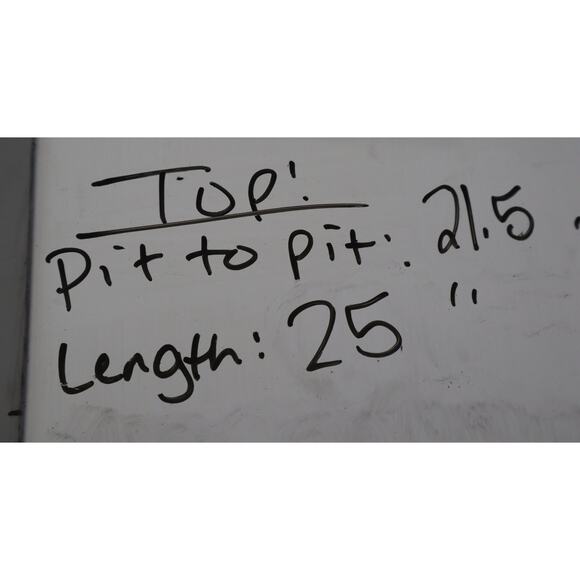 Top:
Pit to pit: 21.5
Length: 25 "